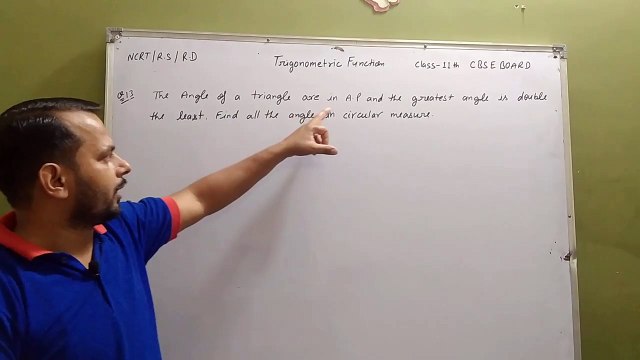 NCRT/R.S/R.D Trigonometric Function Class-11th CBSE BOARD
Q.13 The Angle of a triangle are in A.P and the greatest angle is double
the least. Find all the angle in circular measure.